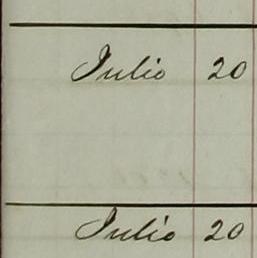 Julio 20
Julio 20